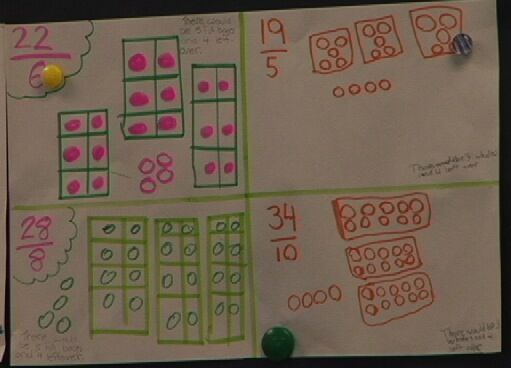 22
6
There would
be 3 full boxes
and 4 left
over.
19
5
There would be 3 wholes
and 4 left over
28
8
There would
be 3 full boxes
and 4 leftover.
34
10
There would be 3
wholes and 4
left over